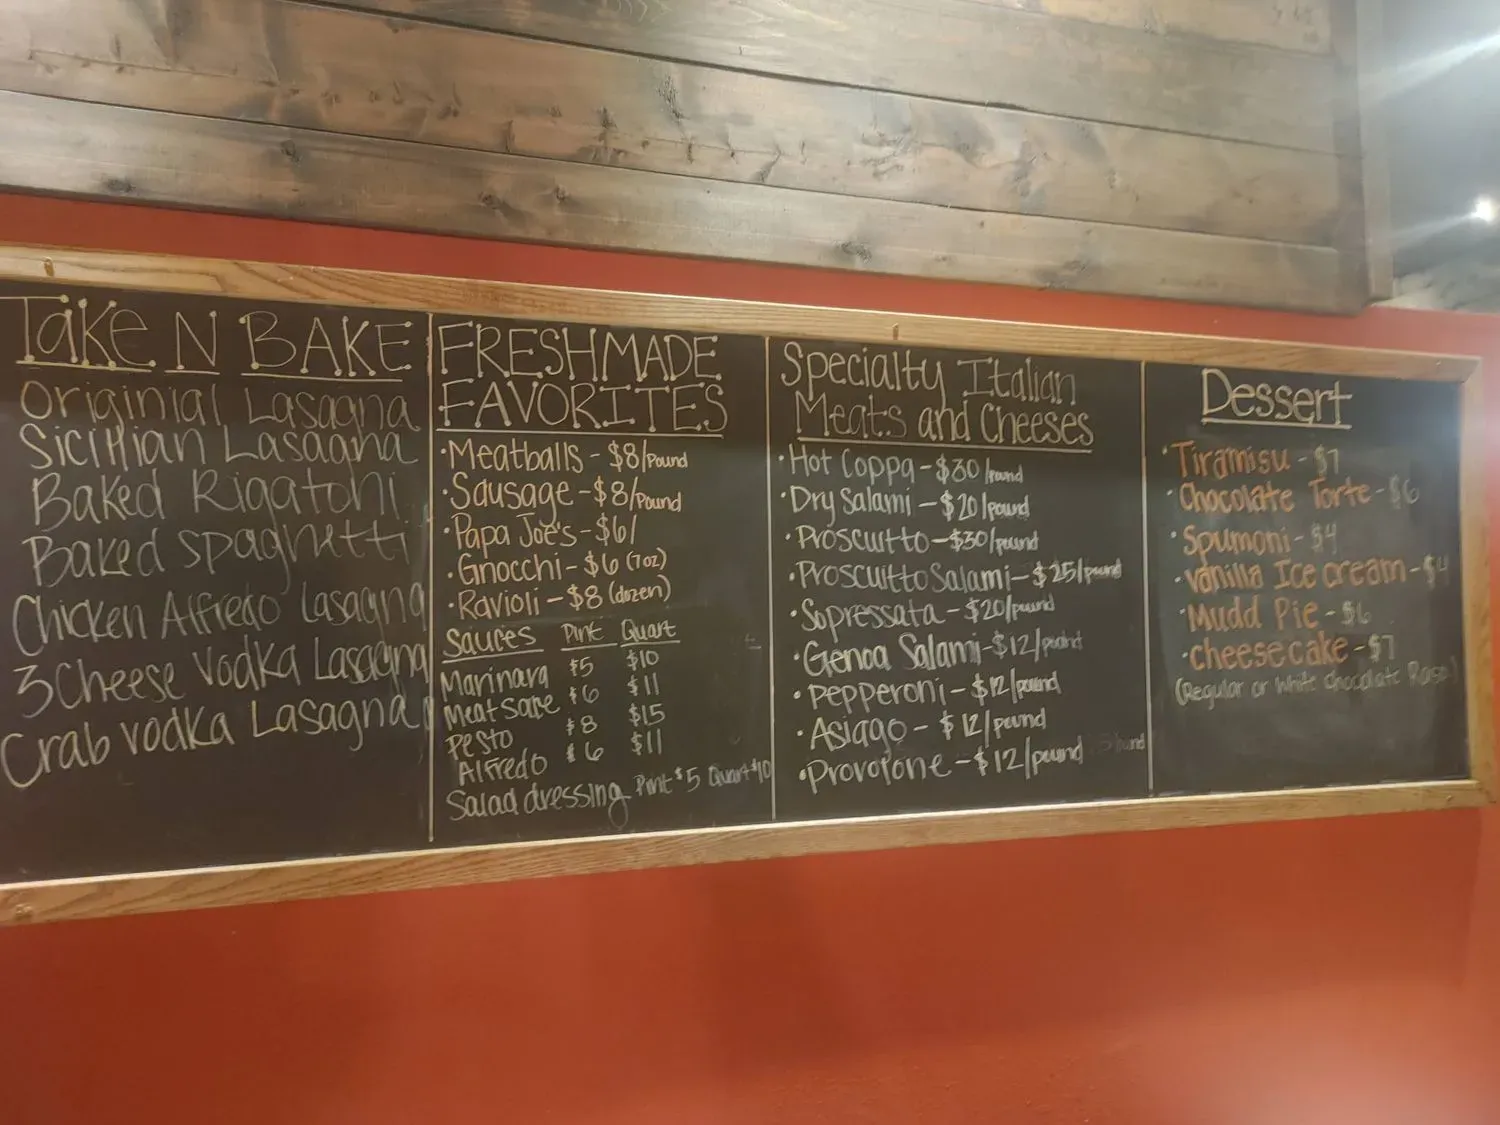 Take N Bake
Originial Lasagna
Sicillian Lasagna
Baked Rigatoni
Baked spaghetti
Chicken Alfredo Lasagna
3 Cheese Vodka Lasagna
Crab vodka Lasagna
FRESHMADE
FAVORITES
·Meatballs - $8/Pound
·Sausage - $8/Pound
·Papa Joe's - $6/
·Gnocchi - $6 (7oz)
·Ravioli - $8 (dozen)
Sauces Pint Quart
Marinara $5 $10
Meat sauce $6 $11
Pesto $8 $15
Alfredo $6 $11
Salad dressing Pint $5 Quart $10
Specialty Italian
Meats and Cheeses
·Hot Coppa - $30/pound
·Dry Salami - $20/pound
·Proscuitto - $30/pound
·Proscuitto Salami - $25/pound
·Sopressata - $20/pound
·Genoa Salami - $12/pound
·Pepperoni - $12/pound
·Asiago - $12/pound
·Provolone - $12/pound
Dessert
·Tiramisu - $7
·Chocolate Torte - $6
·Spumoni - $4
·Vanilla Ice cream - $4
·Mudd Pie - $6
·cheesecake - $7
(Regular or White Chocolate Rasp)